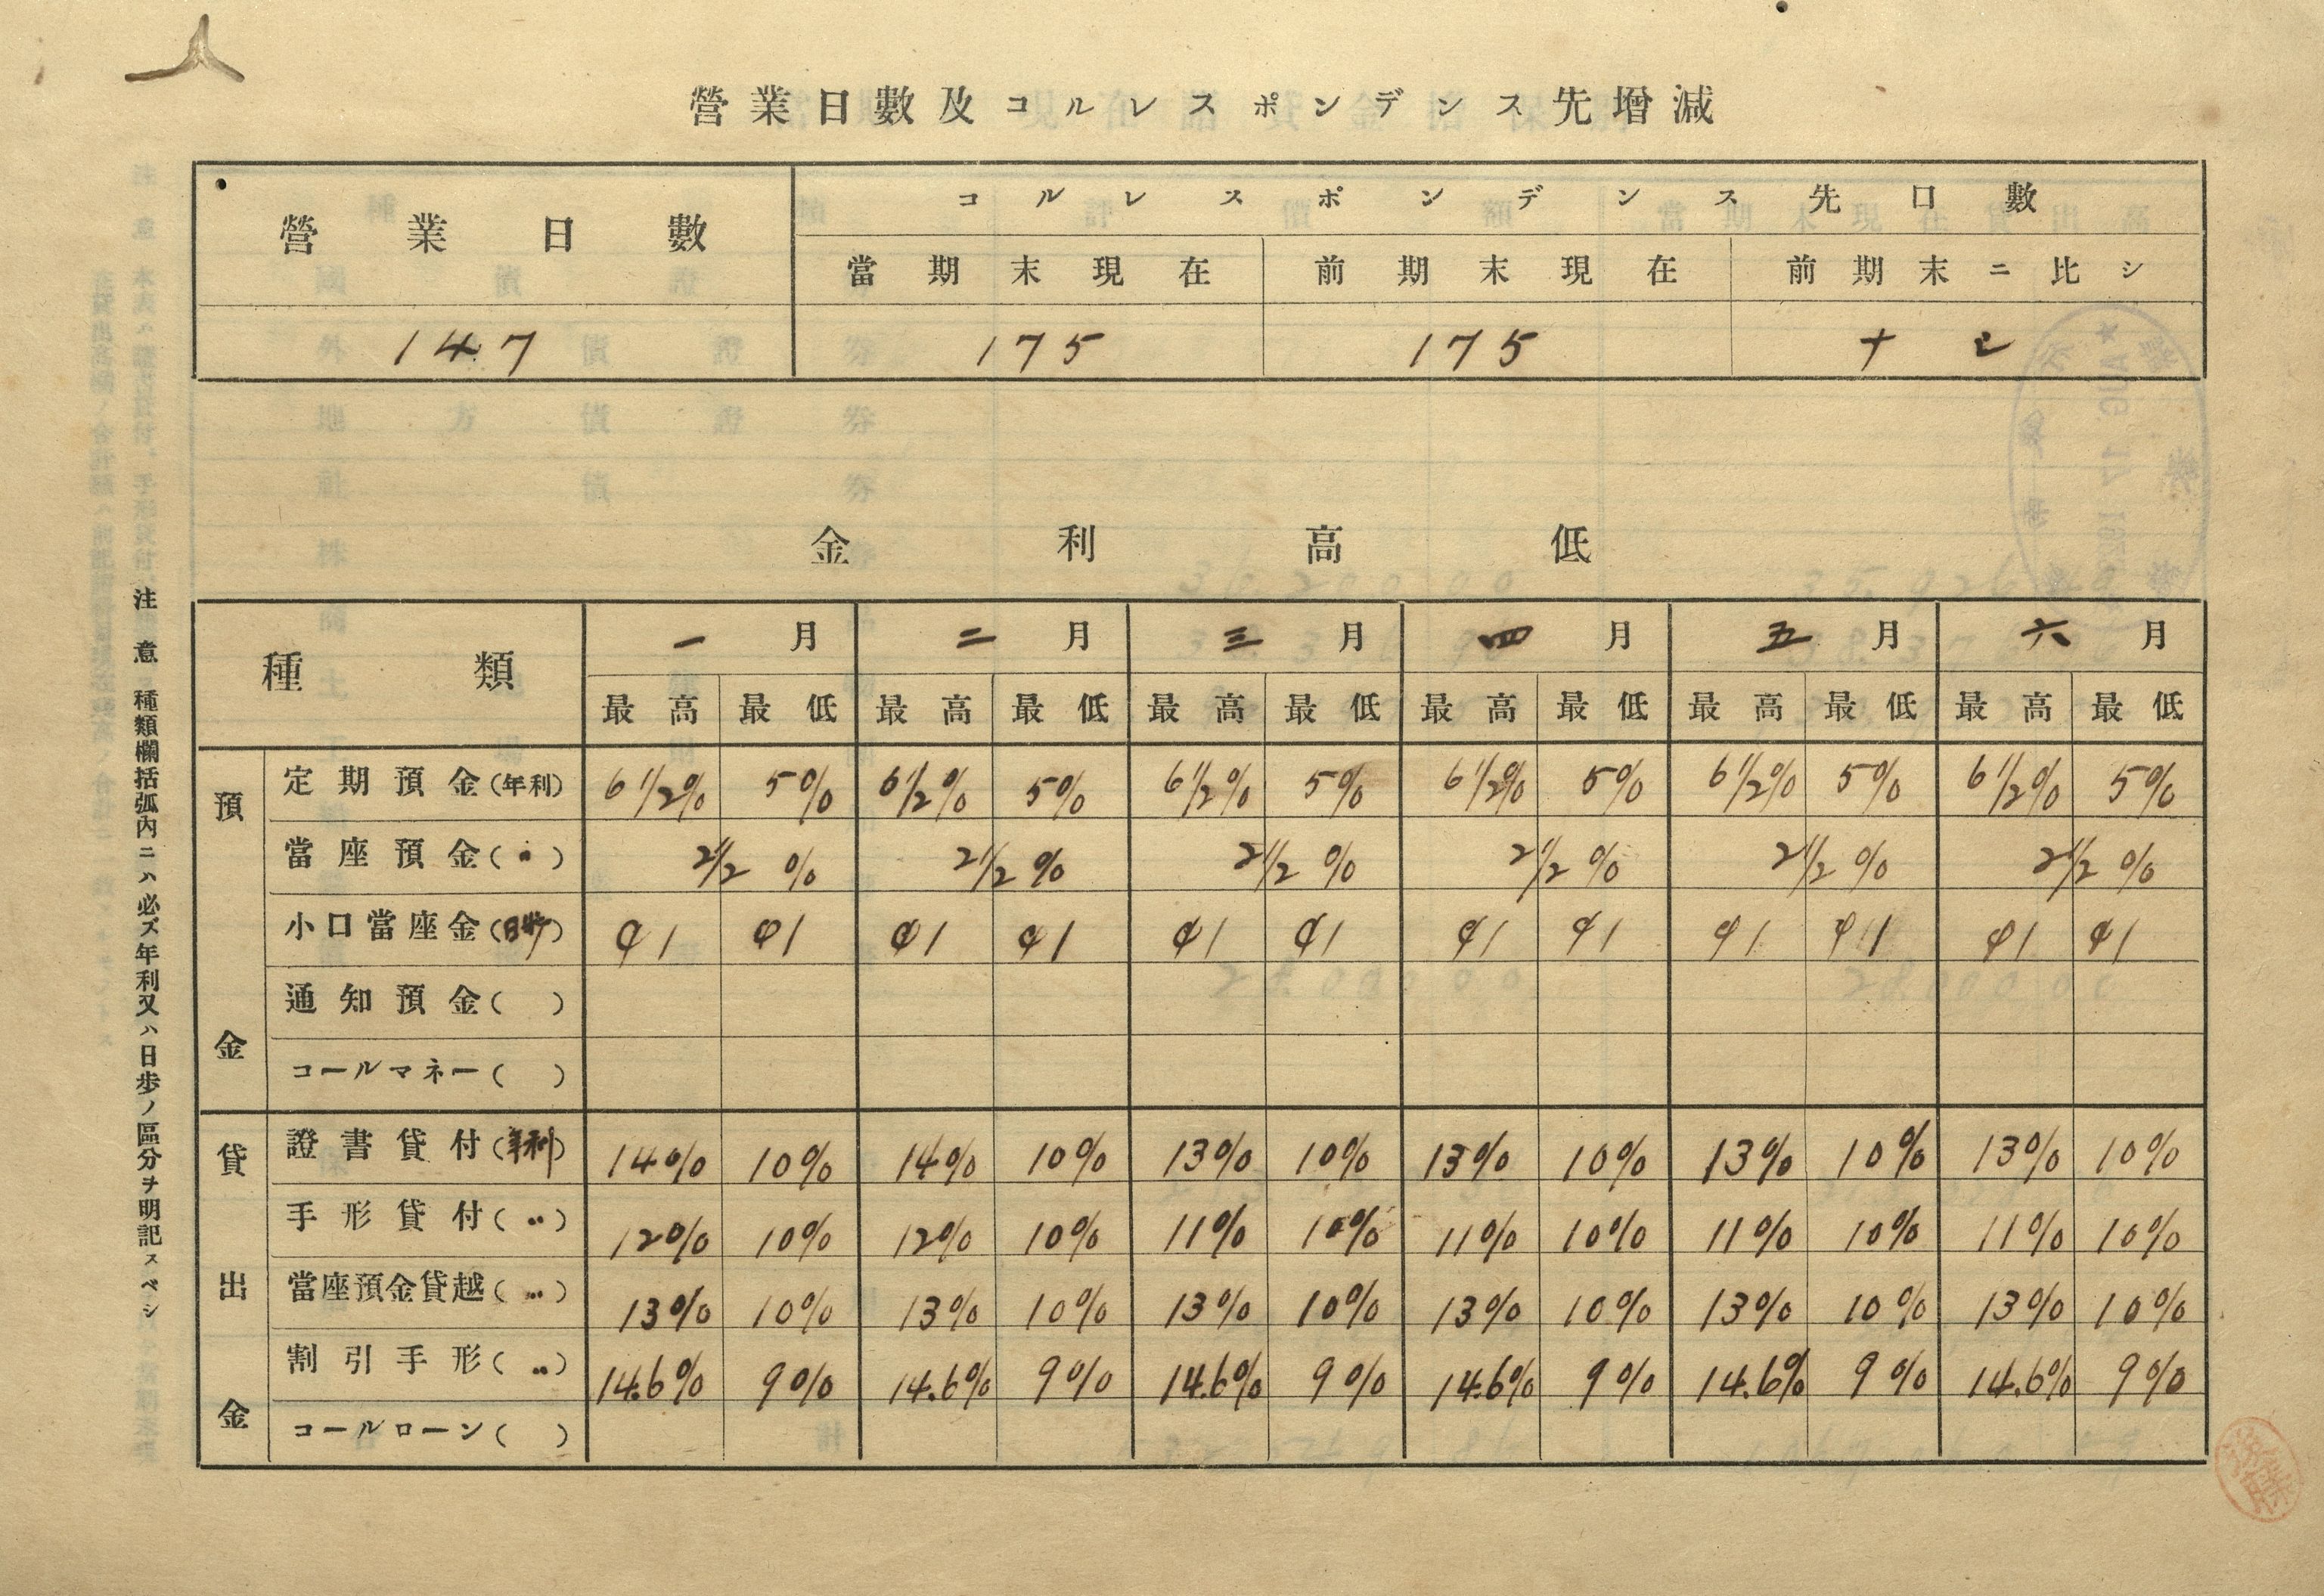 營業日數及コルレスポンデンス先增減
營業日數
コルレスポンデンス先口數
當期末現在 前期末現在 前期末ニ比シ
147 175 175 ナシ
金利高低
種類 一月 二月 三月 四月 五月 六月
最高 最低 最高 最低 最高 最低 最高 最低 最高 最低 最高 最低
預金
定期預金(年利) 6 1/2% 5% 6 1/2% 5% 6 1/2% 5% 6 1/2% 5% 6 1/2% 5% 6 1/2% 5%
當座預金(〃) 2 1/2% 2 1/2% 2 1/2% 2 1/2% 2 1/2% 2 1/2%
小口當座金(日歩) ¢1 ¢1 ¢1 ¢1 ¢1 ¢1 ¢1 ¢1 ¢1 ¢1 ¢1 ¢1
通知預金( )
コールマネー( )
貸出金
證書貸付(年利) 14% 10% 14% 10% 13% 10% 13% 10% 13% 10% 13% 10%
手形貸付(〃) 12% 10% 12% 10% 11% 10% 11% 10% 11% 10% 11% 10%
當座預金貸越(〃) 13% 10% 13% 10% 13% 10% 13% 10% 13% 10% 13% 10%
割引手形(〃) 14.6% 9% 14.6% 9% 14.6% 9% 14.6% 9% 14.6% 9% 14.6% 9%
コールローン( )
注意 種類欄括弧內ニハ必ズ年利又ハ日歩ノ區分ヲ明記スベシ